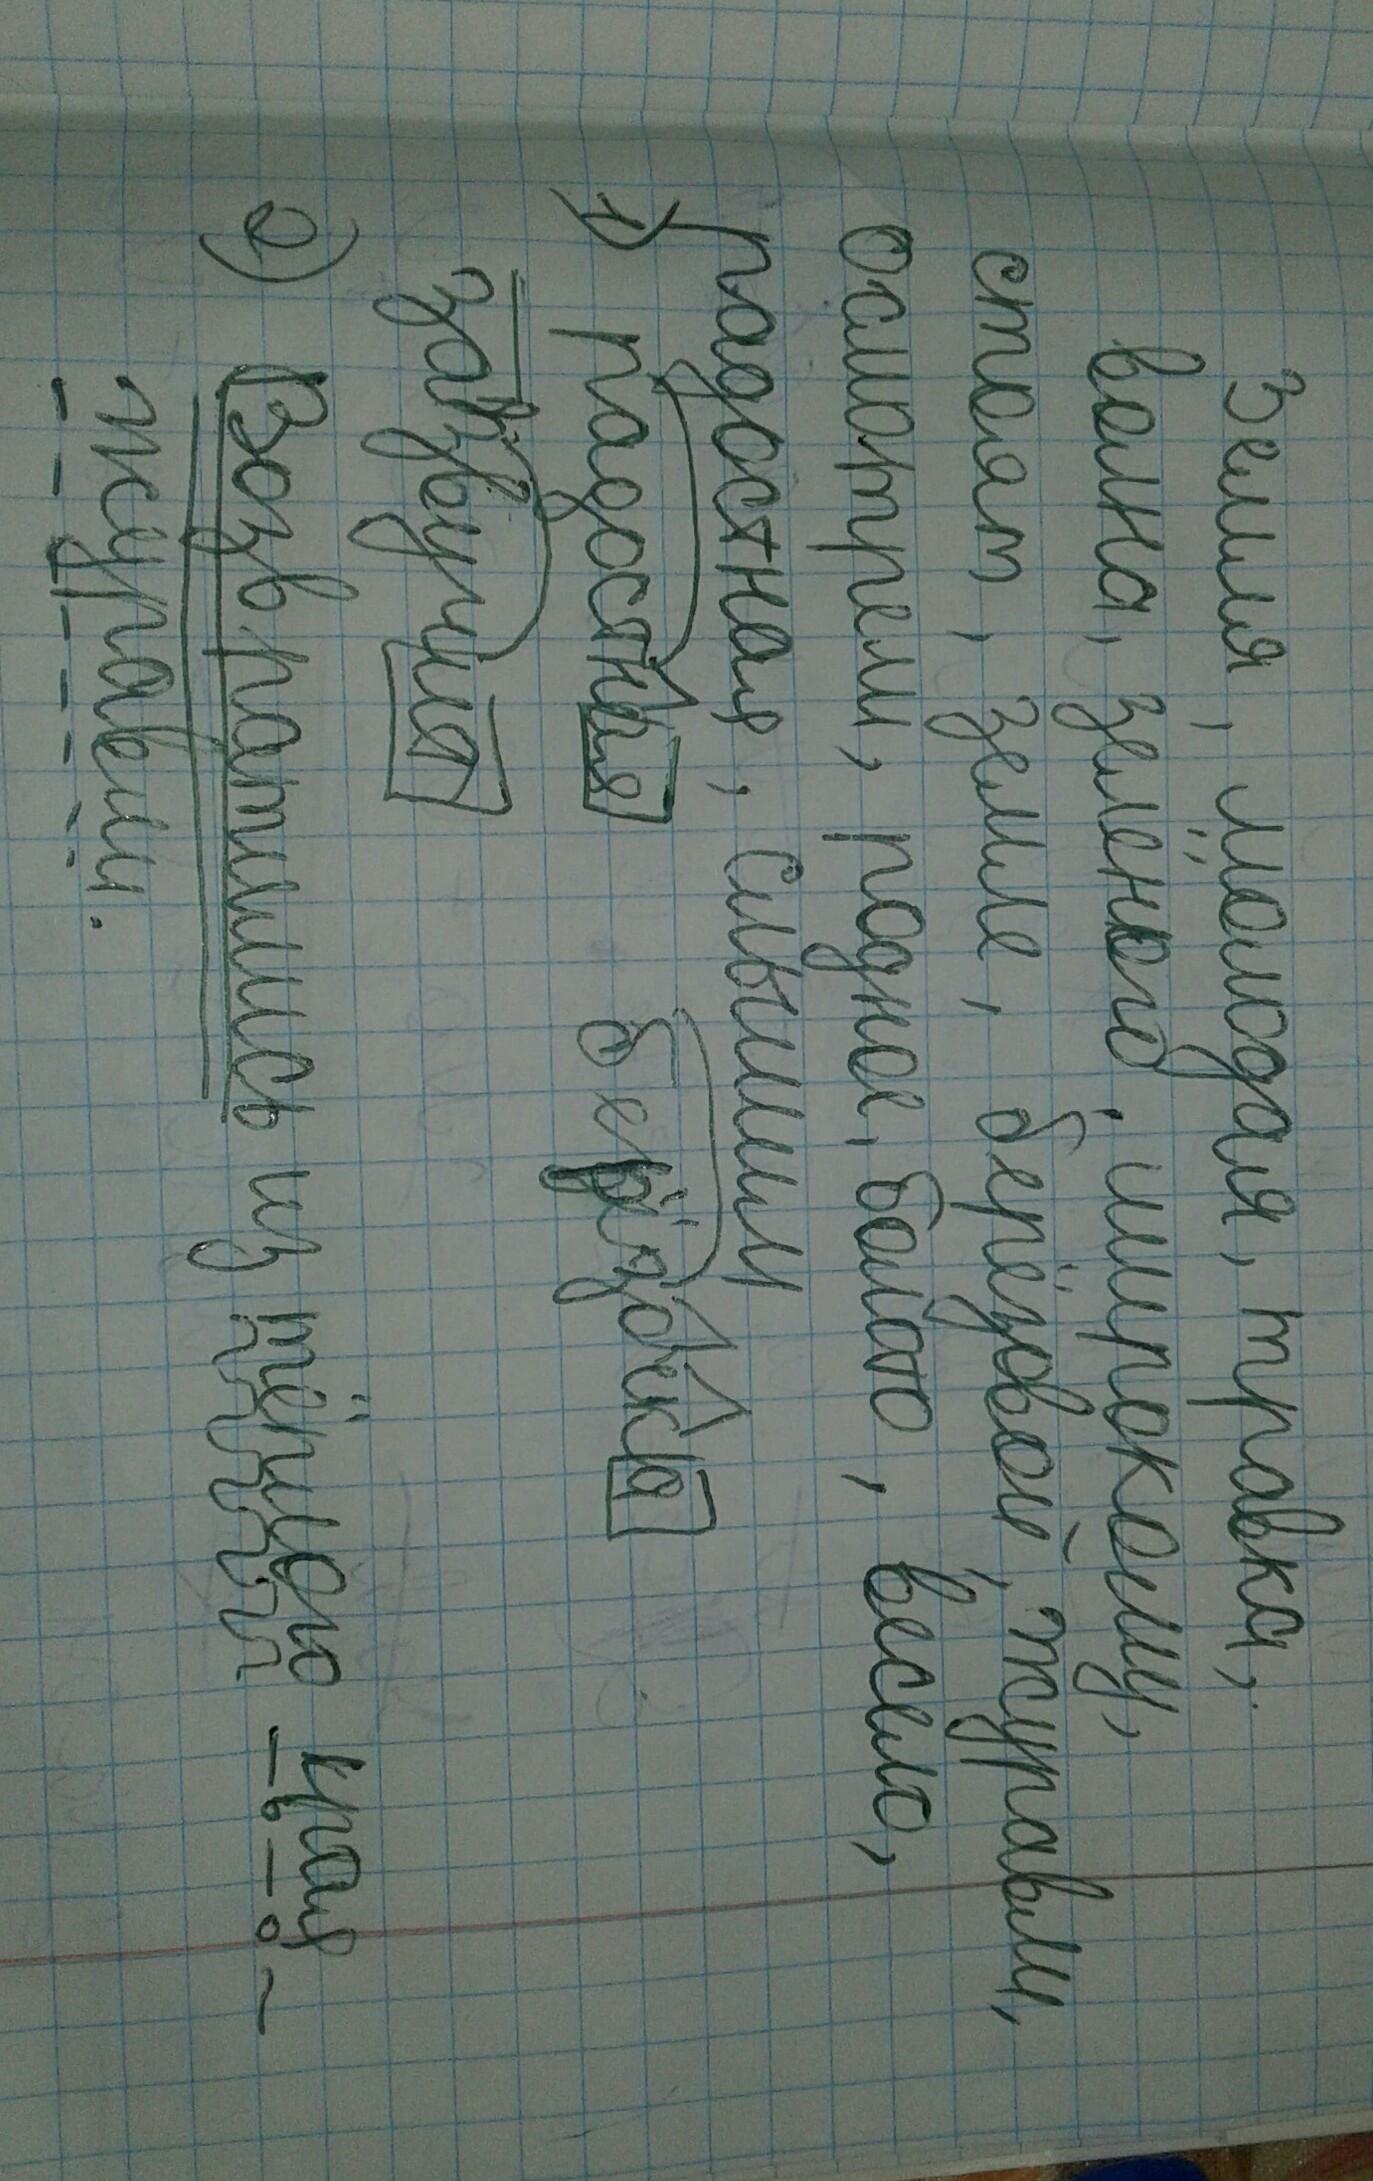 Земля, молодая, травка,
волна, зеленого, широкому,
стоят, земле, берёзвой, журавли,
осмотрем, родное, болото, весело,
радостная, Слышим
1) радостная берёзовка
зазвучия
2) Возвратились из тёплого края
журавли.